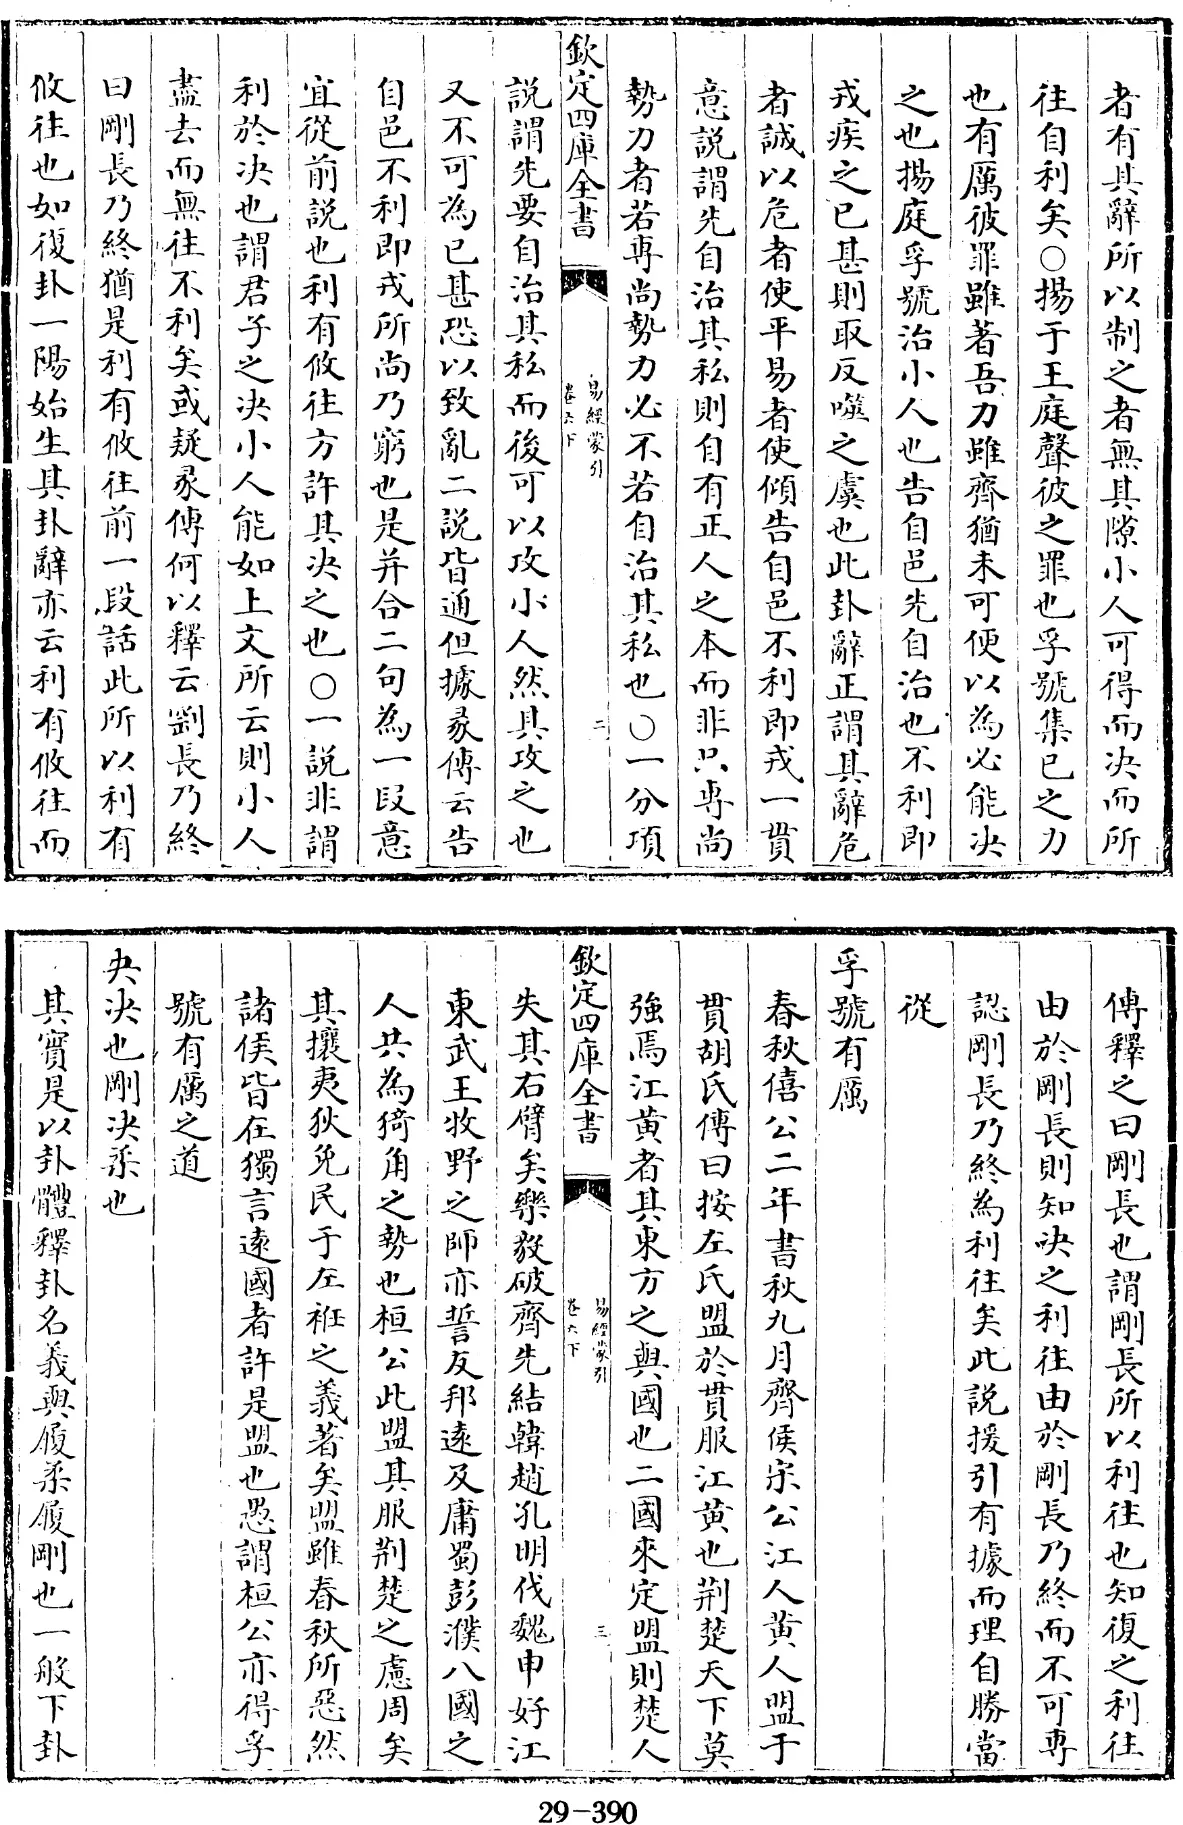 者有其辭所以制之者無其隙小人可得而決而所
往自利矣○揚于王庭聲彼之罪也孚號集已之力
也有厲彼罪雖著吾力雖齊猶未可便以為必能決
之也揚庭孚號治小人也告自邑先自治也不利即
戎疾之已甚則取反噬之虞也此卦辭正謂其辭危
者誠以危者使平易者使傾告自邑不利即戎一貫
意説謂先自治其私則自有正人之本而非只專尚
勢力者若專尚勢力必不若自治其私也○一分項
欽定四庫全書
易經蒙引
卷六下
二
説謂先要自治其私而後可以攻小人然其攻之也
又不可為已甚恐以致亂二説皆通但據彖傳云告
自邑不利即戎所尚乃窮也是并合二句為一段意
宜從前説也利有攸往方許其決之也○一説非謂
利於決也謂君子之決小人能如上文所云則小人
盡去而無往不利矣或疑彖傳何以釋云剛長乃終
曰剛長乃終猶是利有攸往前一段話此所以利有
攸往也如復卦一陽始生其卦辭亦云利有攸往而
傳釋之曰剛長也謂剛長所以利往也知復之利往
由於剛長則知夬之利往由於剛長乃終而不可專
認剛長乃終為利往矣此説援引有據而理自勝當
從
孚號有厲
春秋僖公二年書秋九月齊侯宋公江人黄人盟于
貫胡氏傳曰按左氏盟於貫服江黄也荆楚天下莫
強焉江黄者其東方之與國也二國來定盟則楚人
欽定四庫全書
易經蒙引
卷六下
三
失其右臂矣樂毅破齊先結韓趙孔明伐魏申好江
東武王牧野之師亦誓友邦遠及庸蜀彭濮八國之
人共為猗角之勢也桓公此盟其服荆楚之慮周矣
其攘夷狄免民于左袵之義著矣盟雖春秋所惡然
諸侯皆在獨言遠國者許是盟也愚謂桓公亦得孚
號有厲之道
夬決也剛決柔也
其實是以卦體釋卦名義與履柔履剛也一般下卦
29-390